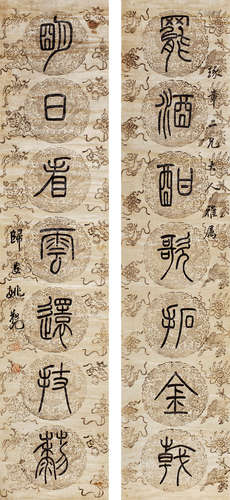 罷酒酣歌拓金戟
章二兄大人雅屬
明日看雲還杖藜
歸安姚覲